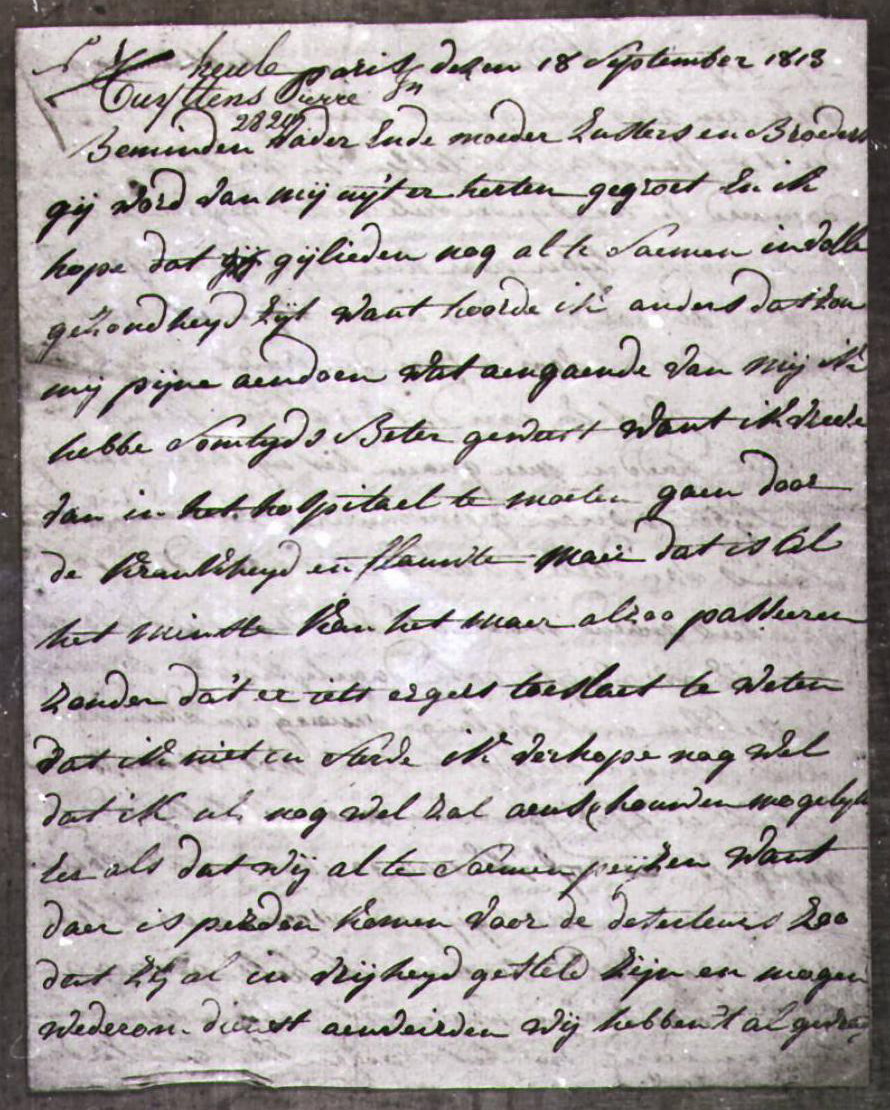 heule paris desen 18 September 1813
Cuyttens Pierre Jn
2824
Beminden vader Ende moeder Zusters en Broeders
gij word van mij uijt er herten gegroet En ik
hope dat gijlieden nog al te Saemen in volle
gezondheyd Zijt want hoorde ik anders dat zou
mij pijne aendoen wat aengaende van mij ik
hebbe Somtyds Beter geweest want ik vreese
van in het hospitael te moeten gaen door
de krankheyd en flauwte maer dat is tal
het minste kan het maer alzoo passeren
zonder dat er iets ergers toeslaet te weten
dat ik niet en sterve ik verhope nog wel
dat ik ul nog wel zal aenschouwen mogelyk
Eer als dat wij al te Saemen peijzen want
daer is perdon komen voor de deserteurs Zoo
dat Zij al in vrijheyd gesteld zijn en mogen
wederom dienst aenveirden wij hebben't al